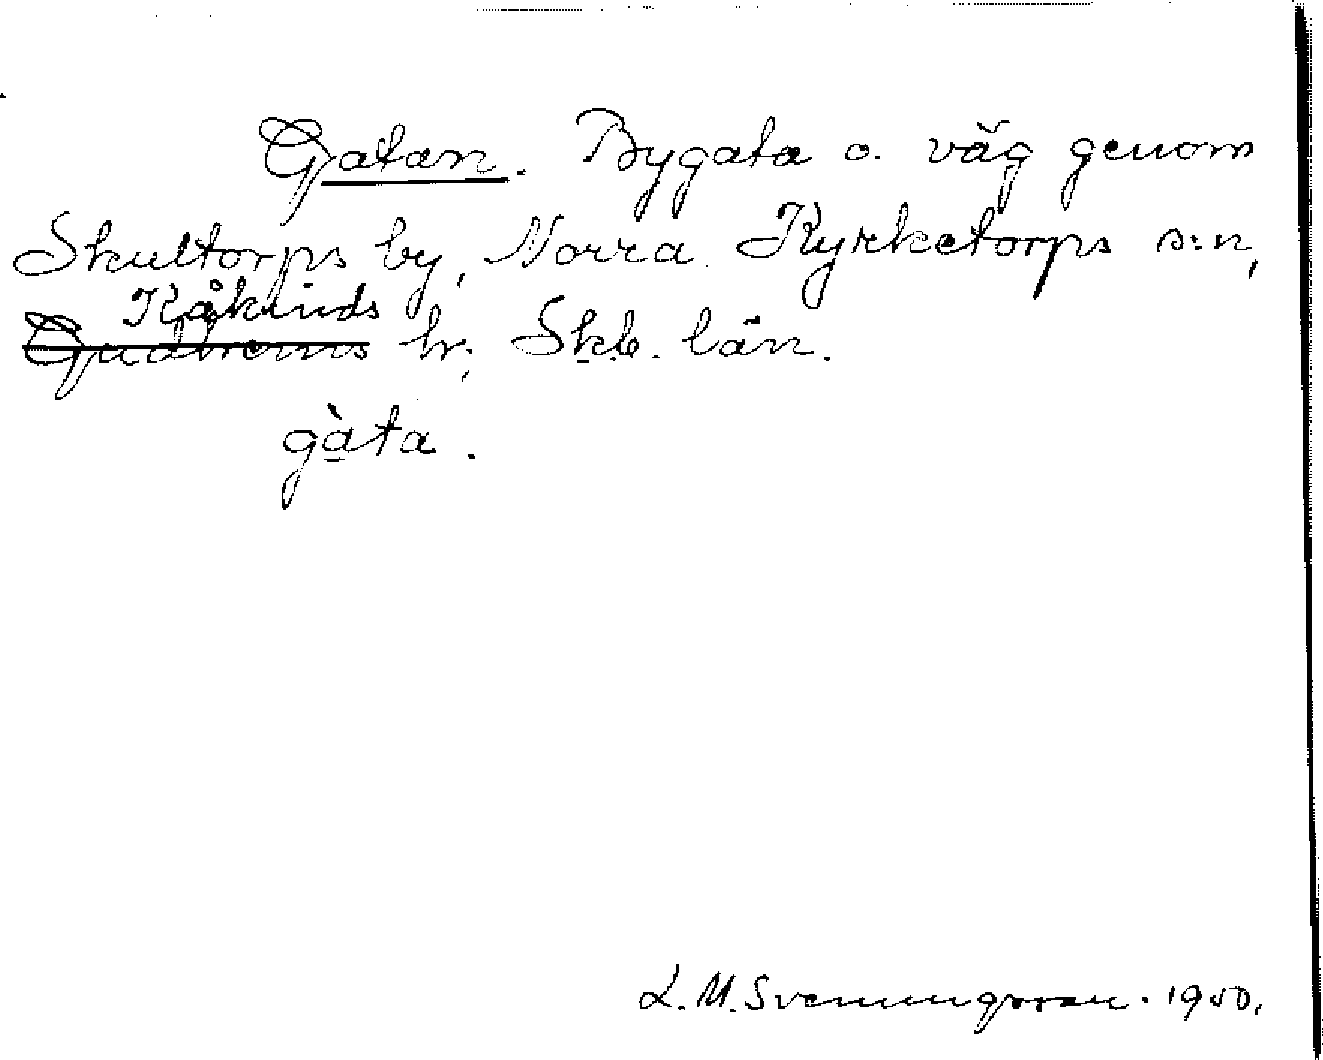 Gatan. Bygata o. väg genom
Skultorps by, Norra Kyrketorps s:n,
Kåkinds
Gudhems hr; Skb. län.
gàta.
L. M. Svenungsson. 1950.